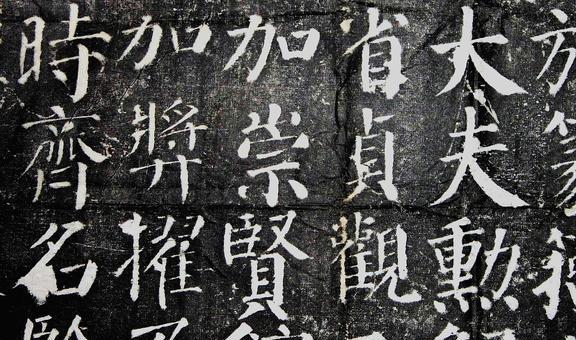 大夫勳
省貞觀
加崇賢
加獎擢
時齊名